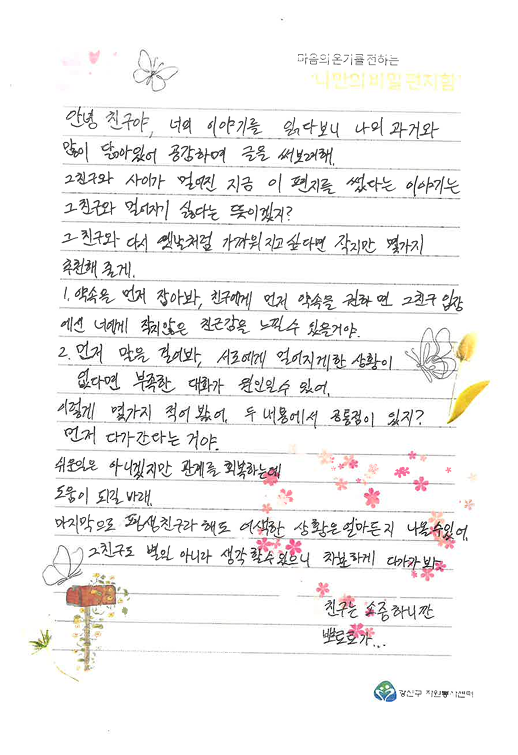 마음의 온기를 전하는
'나만의 비밀 편지함'
안녕 친구야, 너의 이야기를 읽다보니 나의 과거와
많이 닮아있어 공감하며 글을 써보려해.
그친구와 사이가 멀어진 지금 이 편지를 썼다는 이야기는
그친구와 멀어지기 싫다는 뜻이겠지?
그 친구와 다시 옛날처럼 가까워지고 싶다면 작지만 몇가지
추천해 줄게.
1. 약속을 먼저 잡아봐, 친구에게 먼저 약속을 권하면 그친구 입장
에선 너에게 작지않은 친근감을 느낄수 있을거야.
2. 먼저 말을 걸어봐, 서로에게 멀어지게한 상황이
없다면 부족한 대화가 원인일수 있어.
이렇게 몇가지 적어 봤어. 두 내용에서 공통점이 있지?
먼저 다가간다는 거야.
쉬운일은 아니겠지만 관계를 회복하는데
도움이 되길 바래.
마지막으로 평생친구라 해도 어색한 상황은 얼마든지 나올수있어.
그친구도 별일 아니라 생각할수있으니 차분하게 다가가봐.
친구는 소중하니깐
뽀로로가...
강산구 자원봉사센터